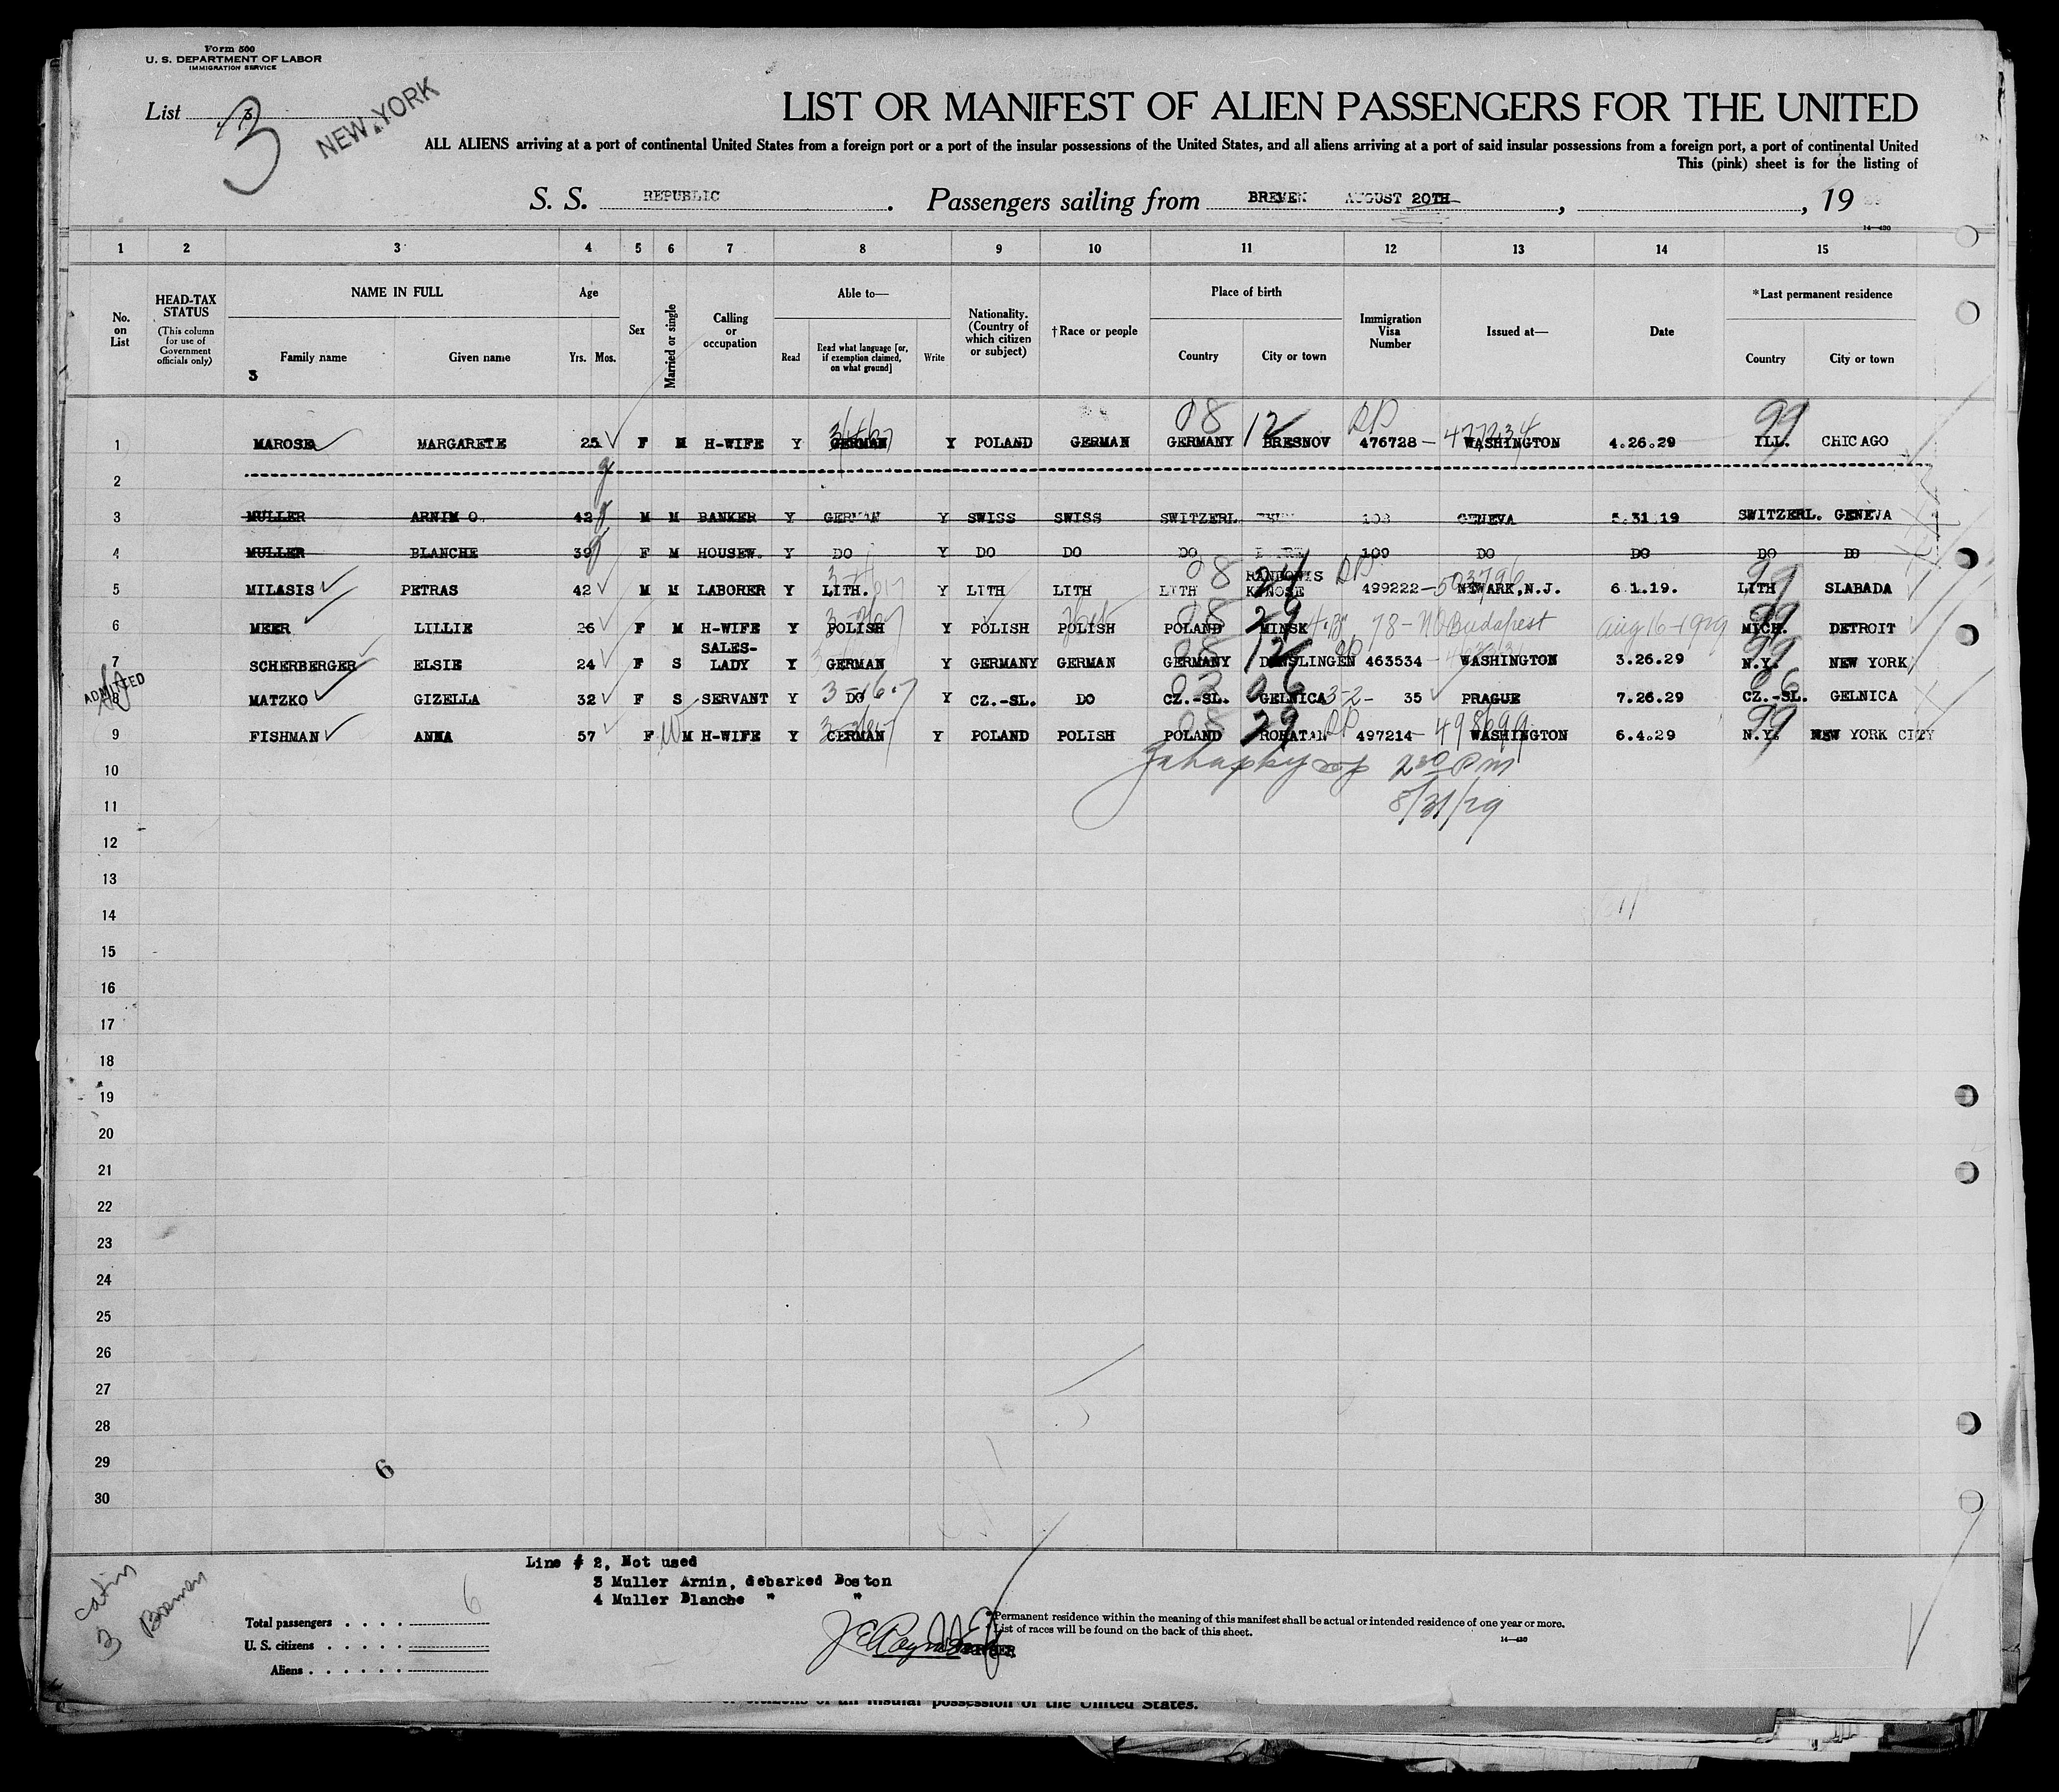 Form 500
U. S. DEPARTMENT OF LABOR
IMMIGRATION SERVICE
List 3
3
NEW YORK
LIST OR MANIFEST OF ALIEN PASSENGERS FOR THE UNITED
ALL ALIENS arriving at a port of continental United States from a foreign port or a port of the insular possessions of the United States, and all aliens arriving at a port of said insular possessions from a foreign port, a port of continental United
This (pink) sheet is for the listing of
S. S. REPUBLIC. Passengers sailing from BREMEN AUGUST 20TH, , 19 29
14—430
1 2 3 4 5 6 7 8 9 10 11 12 13 14 15
No. on List
HEAD-TAX STATUS (This column for use of Government officials only)
NAME IN FULL
Family name Given name
3
Age
Yrs. Mos.
Sex
Married or single
Calling or occupation
Able to—
Read
Read what language [or, if exemption claimed, on what ground]
Write
Nationality. (Country of which citizen or subject)
†Race or people
Place of birth
Country City or town
Immigration Visa Number
Issued at—
Date
*Last permanent residence
Country City or town
08 12 DP 477234 99
1 MAROSE MARGARETE 25 F M H-WIFE Y GERMAN Y POLAND GERMAN GERMANY BRESNOV 476728 — WASHINGTON 4.26.29 ILL. CHICAGO
2
3 MULLER ARNIM O. 42 M M BANKER Y GERMAN Y SWISS SWISS SWITZERL 108 GENEVA 5.31.19 SWITZERL. GENEVA
4 MULLER BLANCHE 39 F M HOUSEW. Y DO Y DO DO DO 109 DO DO DO DO
08 24 DP 503796 99
5 MILASIS PETRAS 42 M M LABORER Y LITH. Y LITH LITH LITH 499222 — NEWARK, N.J. 6.1.19. LITH SLABADA
08 29 78 - NQ Budapest Aug 16-1929 99
6 MEER LILLIE 26 F M H-WIFE Y POLISH Y POLISH POLISH POLAND MINSK MICH. DETROIT
08 12 DP 99
7 SCHERBERGER ELSIE 24 F S SALES-LADY Y GERMAN Y GERMANY GERMAN GERMANY 463534 WASHINGTON 3.26.29 N.Y. NEW YORK
ADMITTED
02 06 3-2- 06
8 MATZKO GIZELLA 32 F S SERVANT Y DO Y CZ.-SL. DO CZ.-SL. GELNICA 35 PRAGUE 7.26.29 CZ.-SL. GELNICA
08 29 DP 498699 99
9 FISHMAN ANNA 57 F W M H-WIFE Y GERMAN Y POLAND POLISH POLAND ROHATAN 497214— WASHINGTON 6.4.29 N.Y. NEW YORK CITY
10
2 30 PM
11
8/31/29
12
13
14
15
16
17
18
19
20
21
22
23
24
25
26
27
28
29
6
30
Line # 2, Not used
3 Muller Arnin, debarked Boston
4 Muller Blanche " "
Cabin
3 Bremen
Total passengers . . . . 6
U. S. citizens . . . . .
Aliens . . . . . .
*Permanent residence within the meaning of this manifest shall be actual or intended residence of one year or more.
List of races will be found on the back of this sheet.
14—430
possession of the United States.